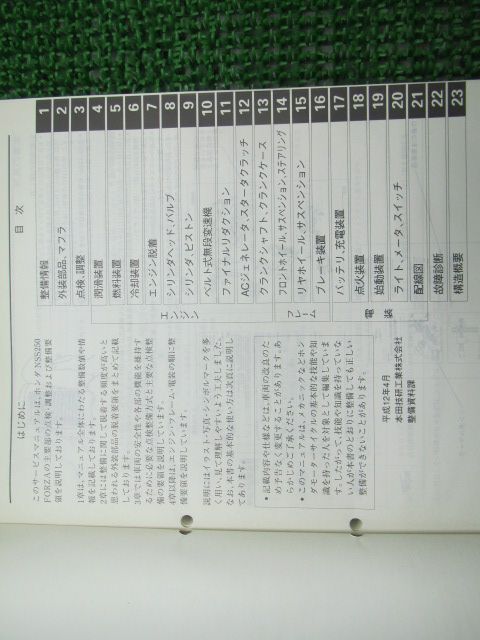 はじめに
このサービスマニュアルは、ホンダ NSS250
FORZAの主要部の点検・調整および整備要
領を説明しております。
1章は、マニュアル全体にわたる整備数値や情
報を記載しております。
2章には整備に関して脱着する頻度が高いと
思われる外装部品の脱着要領をまとめて記載
しております。
3章では車両の安全性や各部の機能を維持す
るために必要な点検整備方式と主要な点検整
備の要領を説明しています。
4章以降は、エンジン・フレーム・電装の順に整
備要領を説明しています。
説明にはイラスト・写真・シンボルマークを多
く用い、見て理解しやすいよう工夫しました。
なお、本書の基本的な使い方は次頁に説明し
てあります。
• 記載内容や仕様などは、車両の改良のた
め予告なく変更することがあります。あ
らかじめご了承ください。
• このマニュアルは、メカニックなどホン
ダモーターサイクルの基本的な技能や知
識を持った人を対象として編集していま
す。したがって、技能や知識を持っていな
い人が本書のとおりに整備しても正しい
整備ができないことがあります。
平成12年4月
本田技研工業株式会社
整備資料課
目 次
整備情報 1
外装部品、マフラ 2
点検・調整 3
エンジン
潤滑装置 4
燃料装置 5
冷却装置 6
エンジン脱着 7
シリンダヘッド、バルブ 8
シリンダ、ピストン 9
ベルト式無段変速機 10
ファイナルリダクション 11
ACジェネレータ、スタータクラッチ 12
クランクシャフト、クランクケース 13
フレーム
フロントホイール、サスペンション、ステアリング 14
リヤホイール、サスペンション 15
ブレーキ装置 16
電装
バッテリ、充電装置 17
点火装置 18
始動装置 19
ライト、メータ、スイッチ 20
配線図 21
故障診断 22
構造概要 23